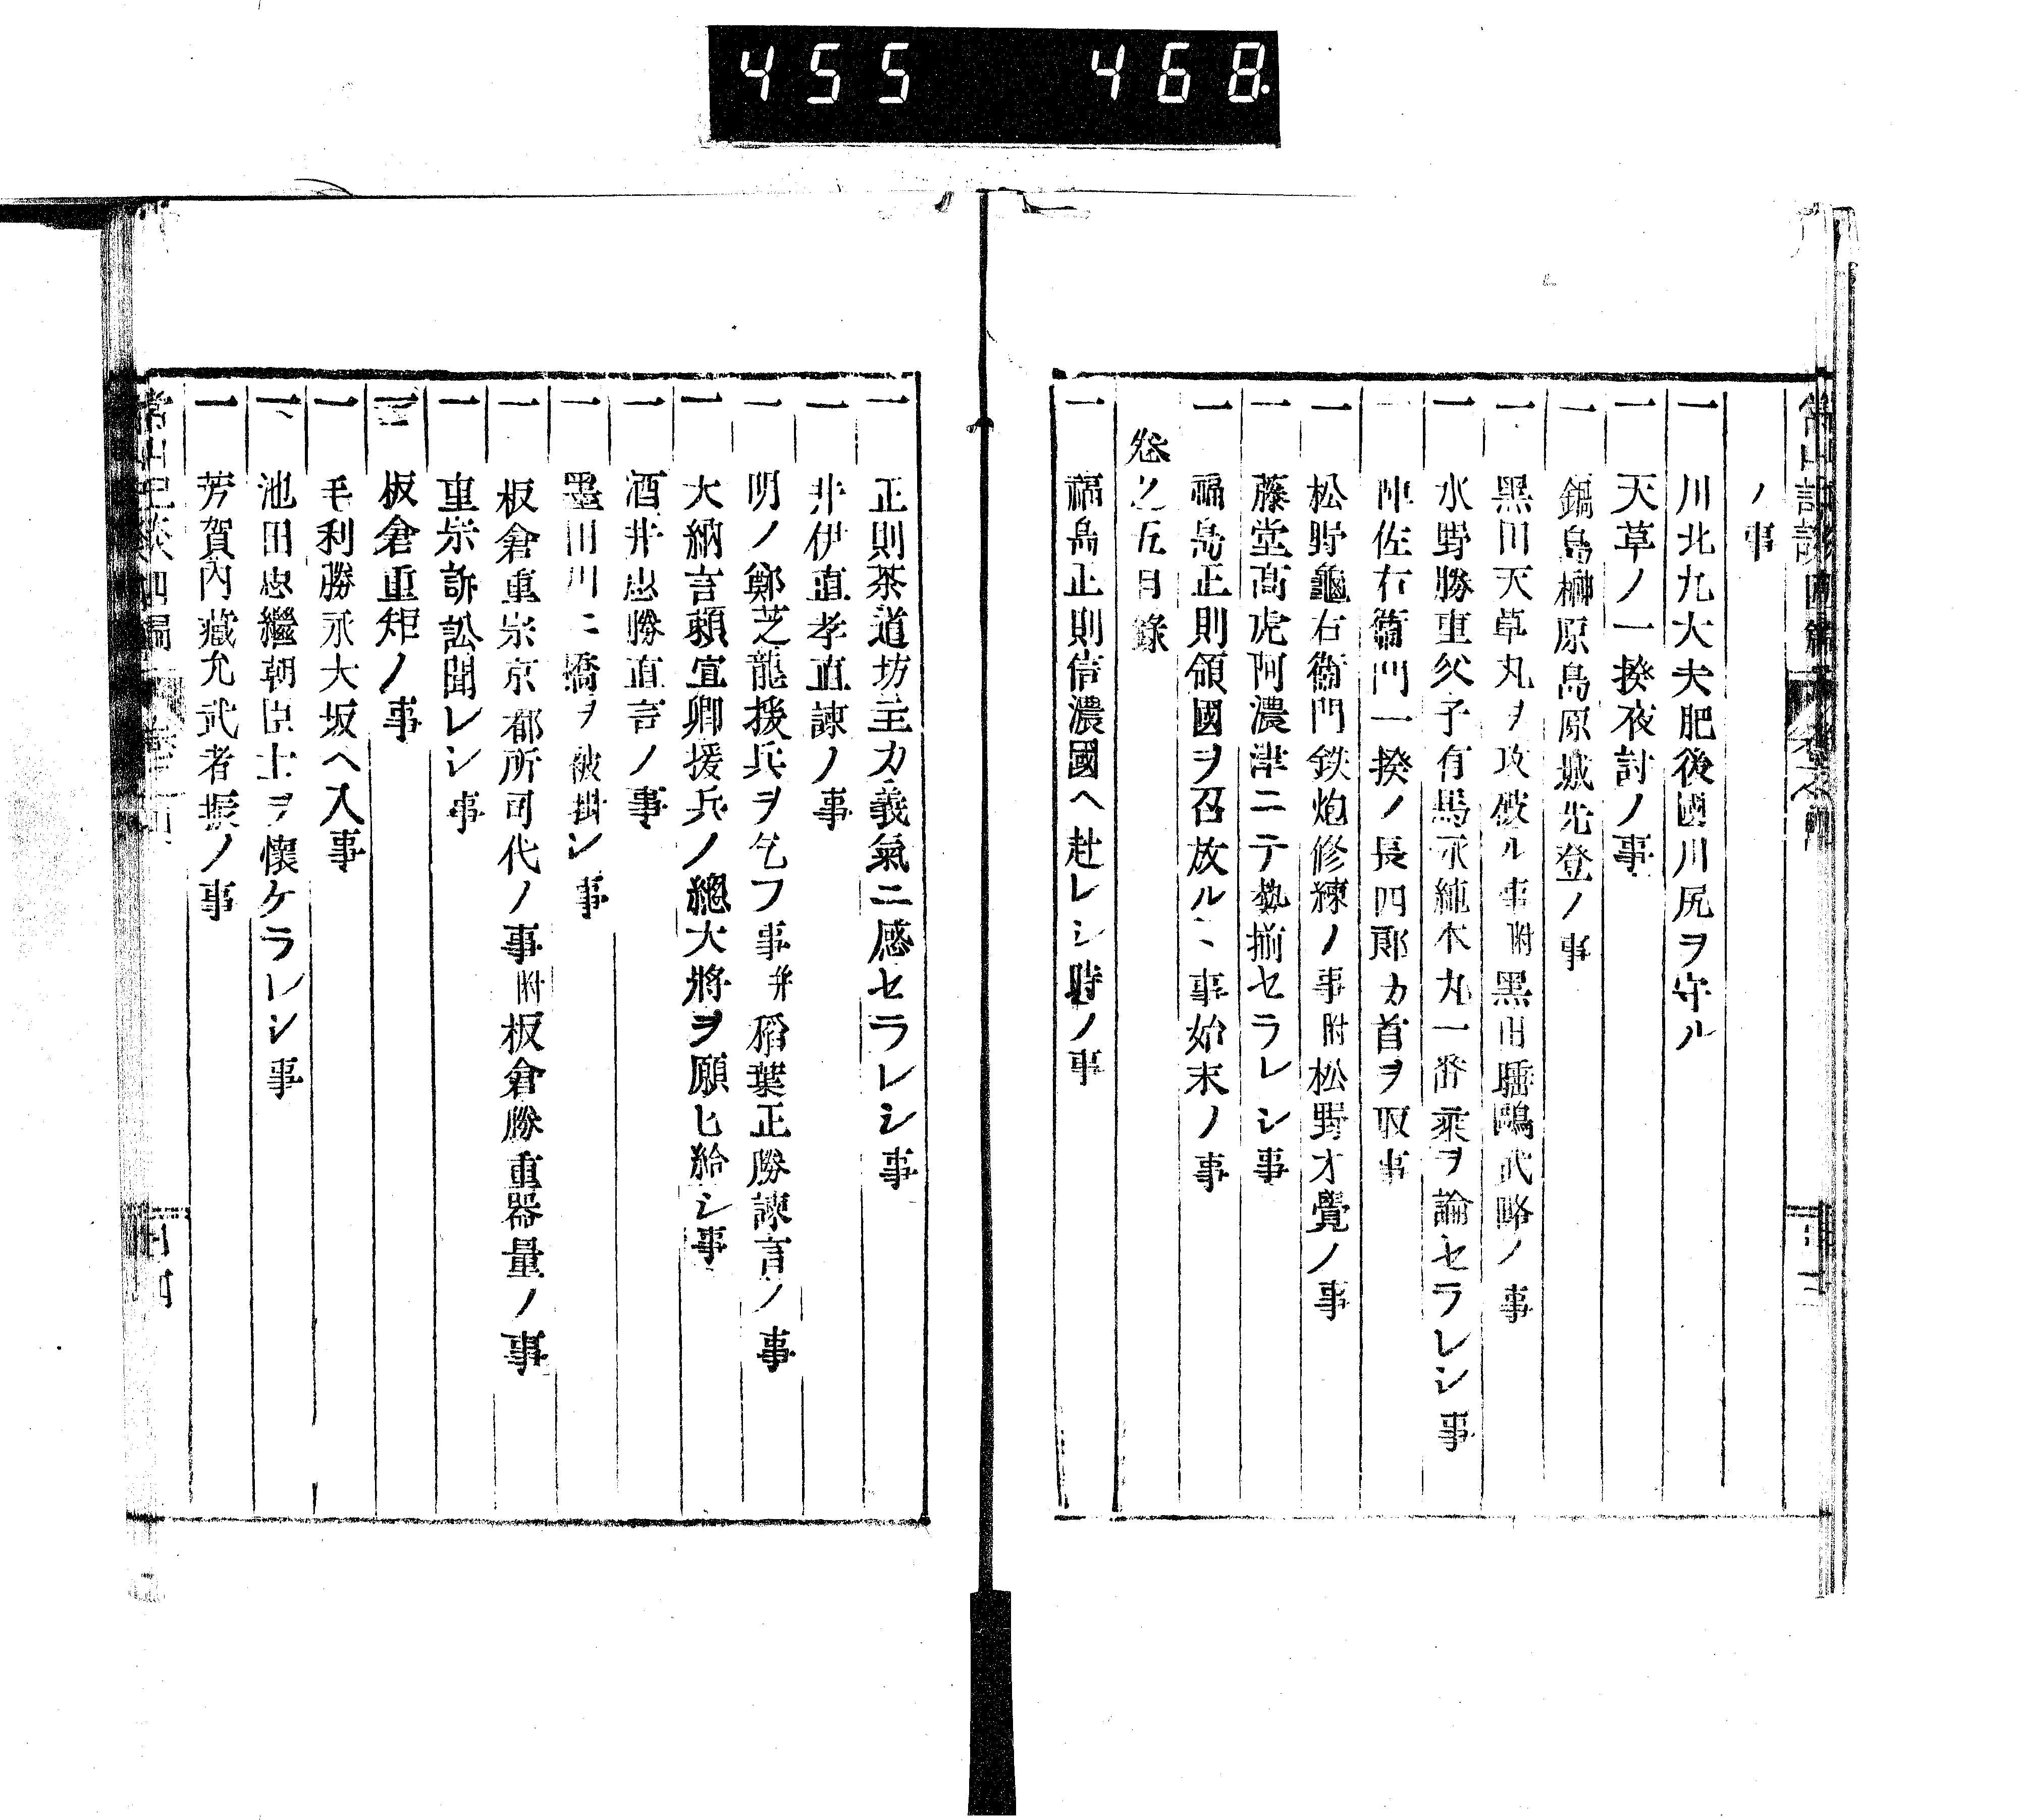 455 468
ノ事
一 川北九大夫肥後國川尻ヲ守ル
一 天草ノ一揆夜討ノ事
一 鍋島榊原島原城先登ノ事
一 黑田天草丸ヲ攻破ル事附黑田武略ノ事
一 水野勝重父子有馬永純本丸一番乘ヲ論セラレシ事
一 陣佐右衞門一揆ノ長四郎カ首ヲ取事
一 松野龜右衞門鉄炮修練ノ事附松野才覺ノ事
一 藤堂高虎阿濃津ニテ勢揃セラレシ事
一 福島正則領國ヲ召放ルヽ事始末ノ事
卷之五目錄
一 福島正則信濃國ヘ赴レシ時ノ事
一 正則茶道坊主カ義氣ニ感セラレシ事
一 井伊直孝直諫ノ事
一 明ノ鄭芝龍援兵ヲ乞フ事并稻葉正勝諫言ノ事
一 大納言賴宣卿援兵ノ總大將ヲ願ヒ給シ事
一 酒井忠勝直言ノ事
一 墨田川ニ橋ヲ被掛シ事
一 板倉重宗京都所司代ノ事附板倉勝重器量ノ事
一 重宗訴訟聞レシ事
一 板倉重矩ノ事
一 毛利勝永大坂ヘ入事
一 池田忠繼朝臣士ヲ懷ケラレシ事
一 芳賀內藏允武者振ノ事